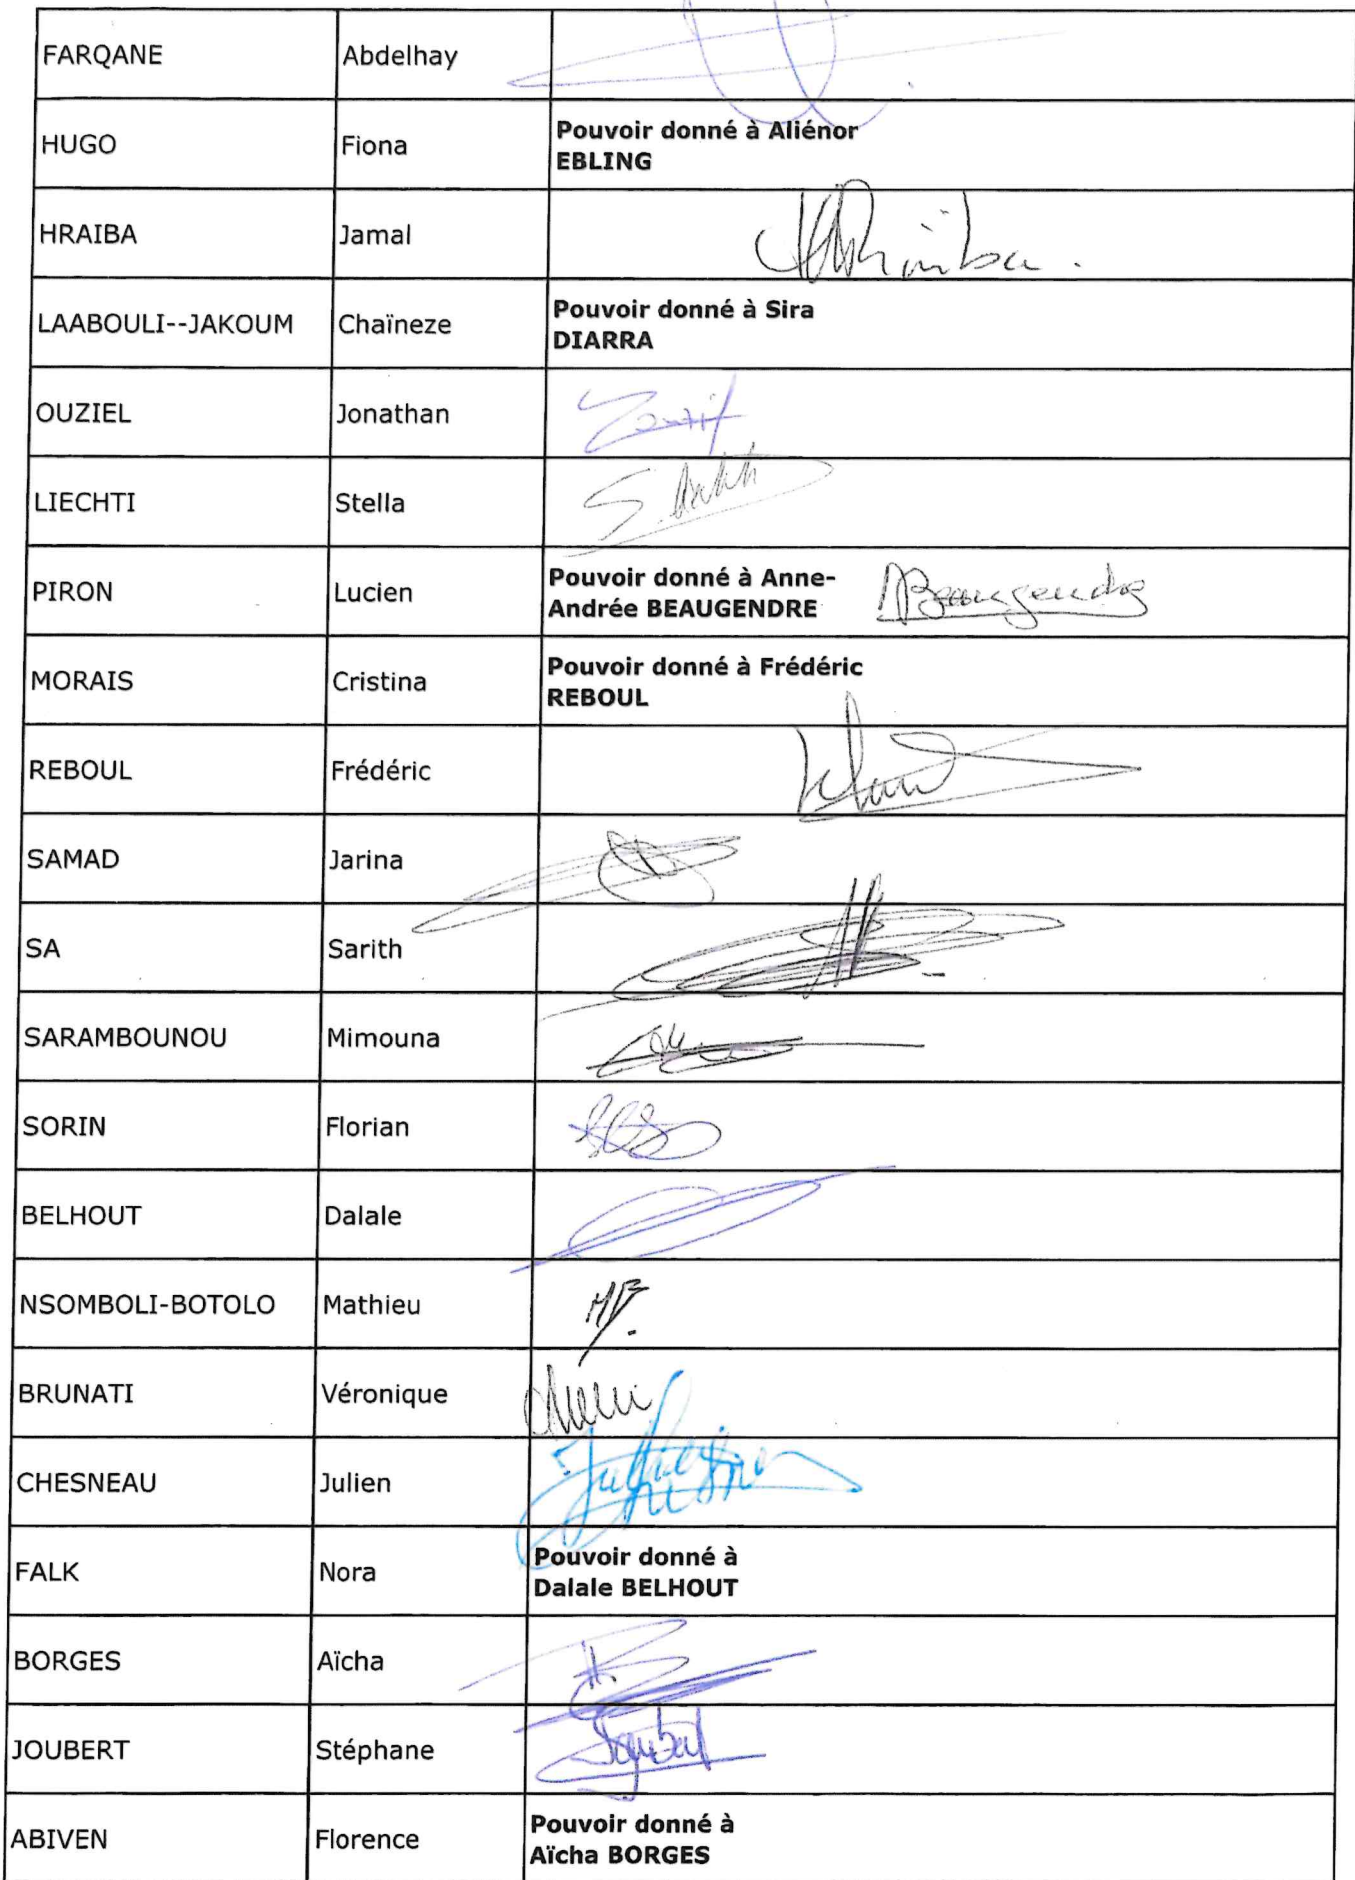 FARQANE Abdelhay
HUGO Fiona Pouvoir donné à Aliénor
EBLING
HRAIBA Jamal
LAABOULI--JAKOUM Chaïneze Pouvoir donné à Sira
DIARRA
OUZIEL Jonathan
LIECHTI Stella
PIRON Lucien Pouvoir donné à Anne-
Andrée BEAUGENDRE Beaugendre
MORAIS Cristina Pouvoir donné à Frédéric
REBOUL
REBOUL Frédéric
SAMAD Jarina
SA Sarith
SARAMBOUNOU Mimouna
SORIN Florian
BELHOUT Dalale
NSOMBOLI-BOTOLO Mathieu
BRUNATI Véronique
CHESNEAU Julien
FALK Nora Pouvoir donné à
Dalale BELHOUT
BORGES Aïcha
JOUBERT Stéphane
ABIVEN Florence Pouvoir donné à
Aïcha BORGES